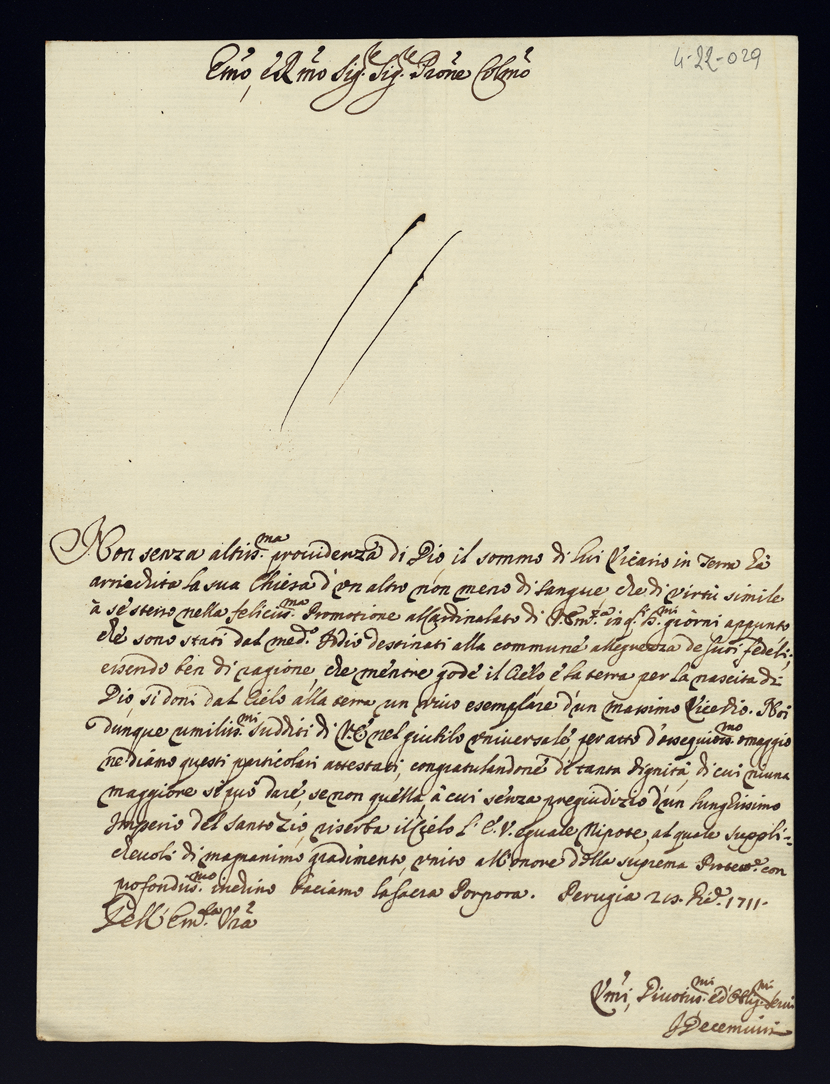 4-22-029
Emõ, e Rmõ Sig.re Sig.re Prõne Colmõ
Non senza altiss.ma prouidenza di Dio il sommo di lui Vicario in Terra hà
arriechita la sua Chiesa d'un altro non meno di sangue che di virtù simile
à sè stesso nella feliciss.ma Promotione al Cardinalato di V. Em.za in q.ti S.mi giorni appunto
che sono stati dal med.o Iddio destinati alla commune allegrezza de suoi fedeli;
essendo ben di ragione, che mentre gode il Cielo, e la terra per la nascita di
Dio, si doni dal Cielo alla terra un viuo esemplare d'un massimo Vicedio. Noi
dunque umiliss.mi sudditi di V.E. nel giubilo vniuersale, per atto d'ossequios.mo omaggio
ne diamo questi particolari attestati, congratulandone di tanta dignità, di cui niuna
maggiore si può dare, se non quella, à cui senza pregiudizio d'un lunghissimo
Imperio del santo Zio, riserba il Cielo l'E.V. eguale Nipote, al quale suppli-
cheuoli di magnanimo gradimento, vnito all'onore della suprema Protett.e con
profondiss.mo inchino baciamo la sacra Porpora. Perugia 2 Xbre 1711.
Dell'Em.za Vrã
Vmi, Diuotiss.mi ed Oblig.mi serui
I Decemuiri